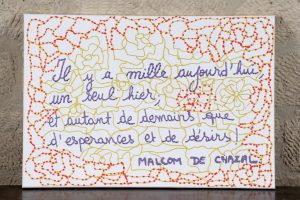 Il y a mille aujourd'hui,
un seul hier,
et autant de demains que
d'espérances et de désirs!
MALCOM DE CHAZAL